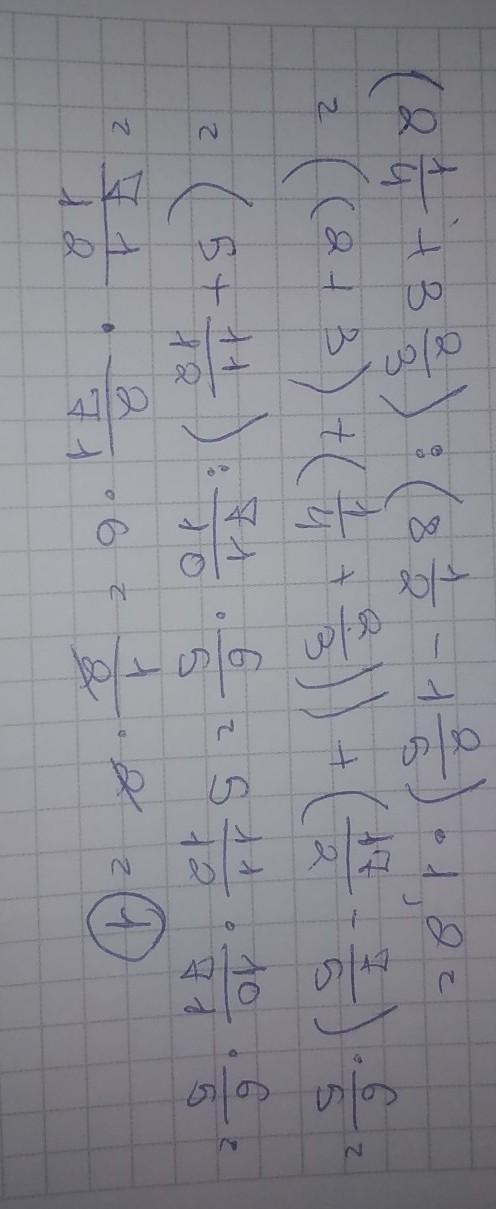 (2 1/4 + 3 2/3) : (8 1/2 - 1 2/5) · 1,2 =
= ((2 + 3) + (1/4 + 2/3)) + (17/2 - 7/5) · 6/5 =
= (5 + 11/12) : 71/10 · 6/5 = 5 11/12 · 10/71 · 6/5 =
= 71/12 · 2/71 · 6 = 1/2 · 2 = 1